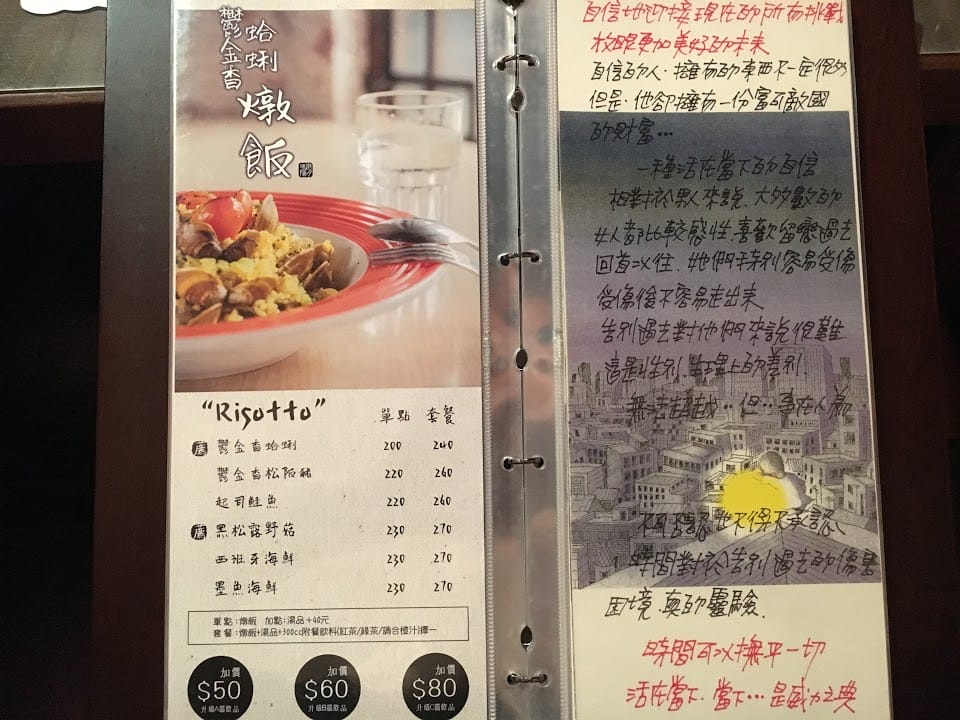 鬱金香
蛤蜊
燉飯
"Risotto" 單點 套餐
薦 鬱金香蛤蜊 200 240
鬱金香松阪豬 220 260
起司鮭魚 220 260
薦 黑松露野菇 230 270
西班牙海鮮 230 270
墨魚海鮮 230 270
單點:燉飯 加點:湯品+40元
套餐:燉飯+湯品+300cc附餐飲料(紅茶/綠茶/調合橙汁)擇一
加價
$50
升級A區飲品
加價
$60
升級B區飲品
加價
$80
升級C區飲品
自信地迎接現在的所有挑戰
放眼更加美好的未來
自信的人.擁有的東西不一定很多
但是.他卻擁有一份富可敵國
的財富…
一種活在當下的自信
相對於男人來說.大多數的
女人都比較感性.喜歡留戀過去
回首以往.她們特別容易受傷
受傷後不容易走出來
告別過去對他們來說很難
這是性別.生理上的差別.
無法超越…但…事在人為
不可否認.也不得不承認
時間對於告別過去的傷害
困境.真的靈驗.
時間可以撫平一切
活在當下.當下…是威力之點